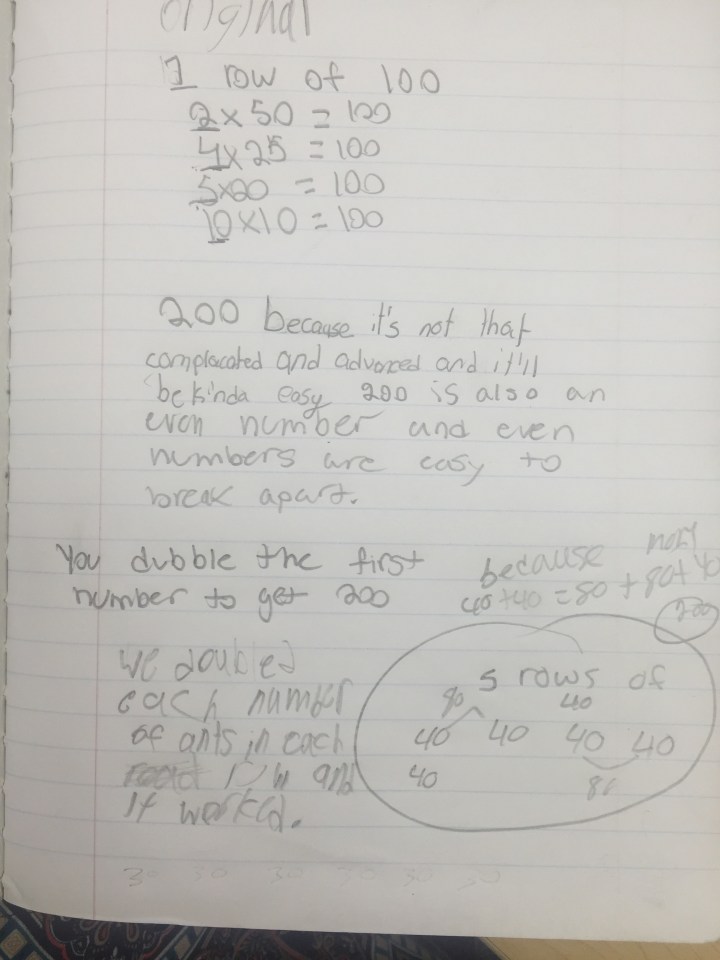 original
1 row of 100
2x50 = 100
4x25 = 100
5x20 = 100
10x10 = 100
200 because it's not that
complacated and advanced and it'll
be kinda easy 200 is also an
even number and even
numbers are easy to
break apart.
You dubble the first
number to get 200
because
40+40 = 80 + 80+ 40
200
we doubled
each number
of ants in each
row and
it worked.
5 rows of
80 40
40 40 40 40
40 80
30 30 30 30 30 30